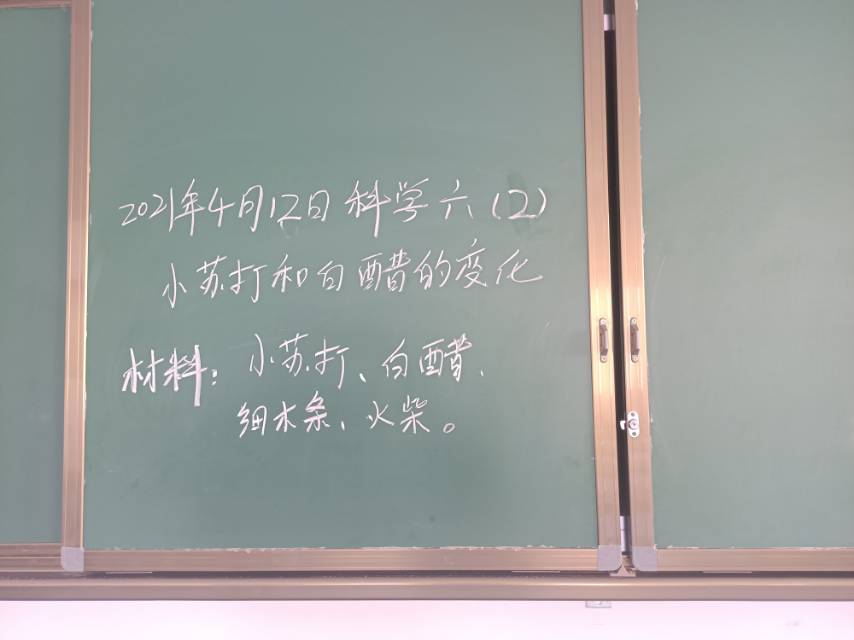 2021年4月12日科学六(2)
小苏打和白醋的变化
材料：小苏打、白醋、
细木条、火柴。